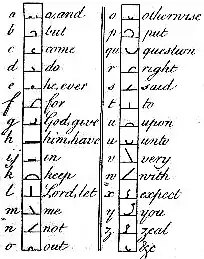 a a, and
b but
c come
d do
e he, ever
f for
g God, give
h him, have
ij in
k keep
l Lord, let
m me
n not
o out
o otherwise
p put
qu question
r right
s said
t to
u upon
u unto
v very
w with
x expect
y you
z zeal
&c